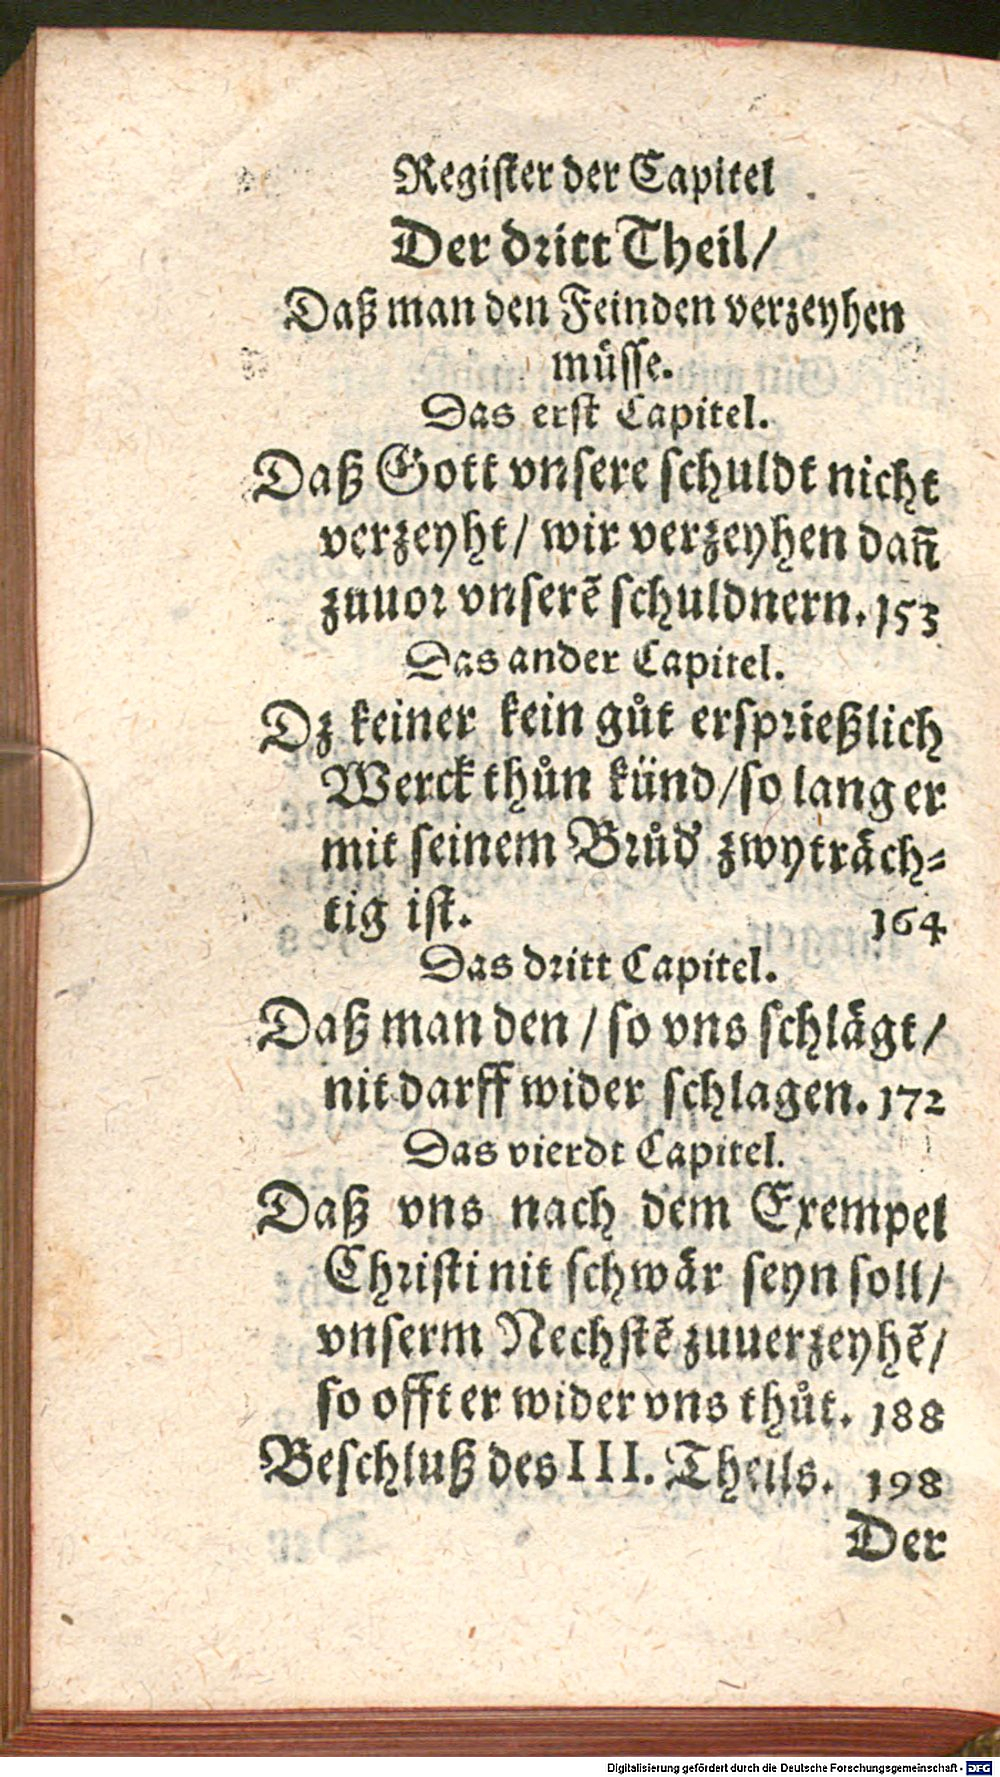 Register der Capitel
Der dritt Theil/
Daß man den Feinden verzeyhen
müsse.
Das erst Capitel.
Daß Gott vnsere schuldt nicht
verzeyht/ wir verzeyhen dañ
zuuor vnserẽ schuldnern. 153
Das ander Capitel.
Dz keiner kein gůt ersprießlich
Werck thůn künd/ so lang er
mit seinem Brůď zwyträch-
tig ist. 164
Das dritt Capitel.
Daß man den/ so vns schlägt/
nit darff wider schlagen. 172
Das vierdt Capitel.
Daß vns nach dem Exempel
Christi nit schwär seyn soll/
vnserm Nechstẽ zuuerzeyhẽ/
so offt er wider vns thůt. 188
Beschluß des III. Theils. 198
Der
Digitalisierung gefördert durch die Deutsche Forschungsgemeinschaft - DFG